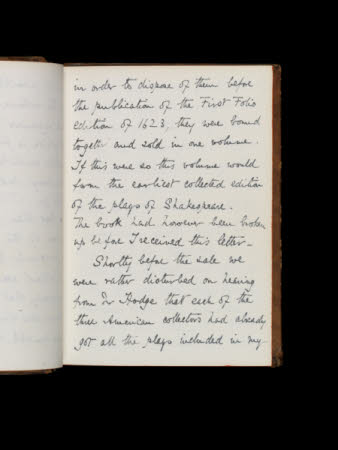 in order to dispose of them before
the publication of the First Folio
edition of 1623, they were bound
together and sold in one volume.
If this were so this volume would
form the earliest collected edition
of the plays of Shakespeare.
The book had however been broken
up before I received this letter –
Shortly before the sale we
were rather disturbed on hearing
from Dr Hodge that each of the
three American collectors had already
got all the plays included in my